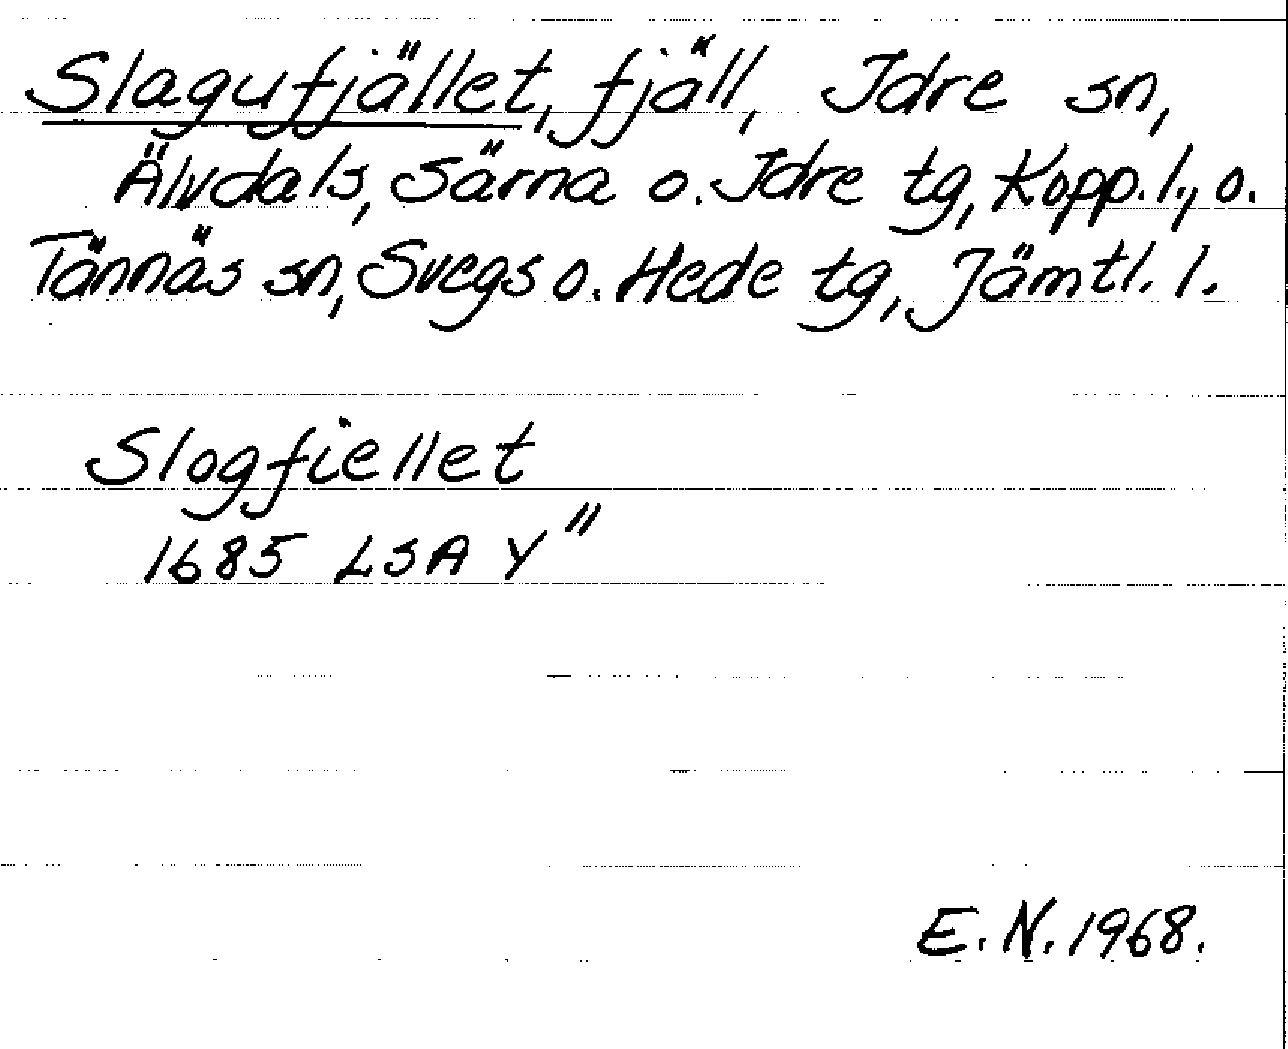 Slagufjället, fjäll, Idre sn,
Älvdals, Särna o. Idre tg, Kopp. l., o.
Tännäs sn, Svegs o. Hede tg, Jämtl. l.
Slogfiellet
1685 LSA Y"
E. N. 1968.